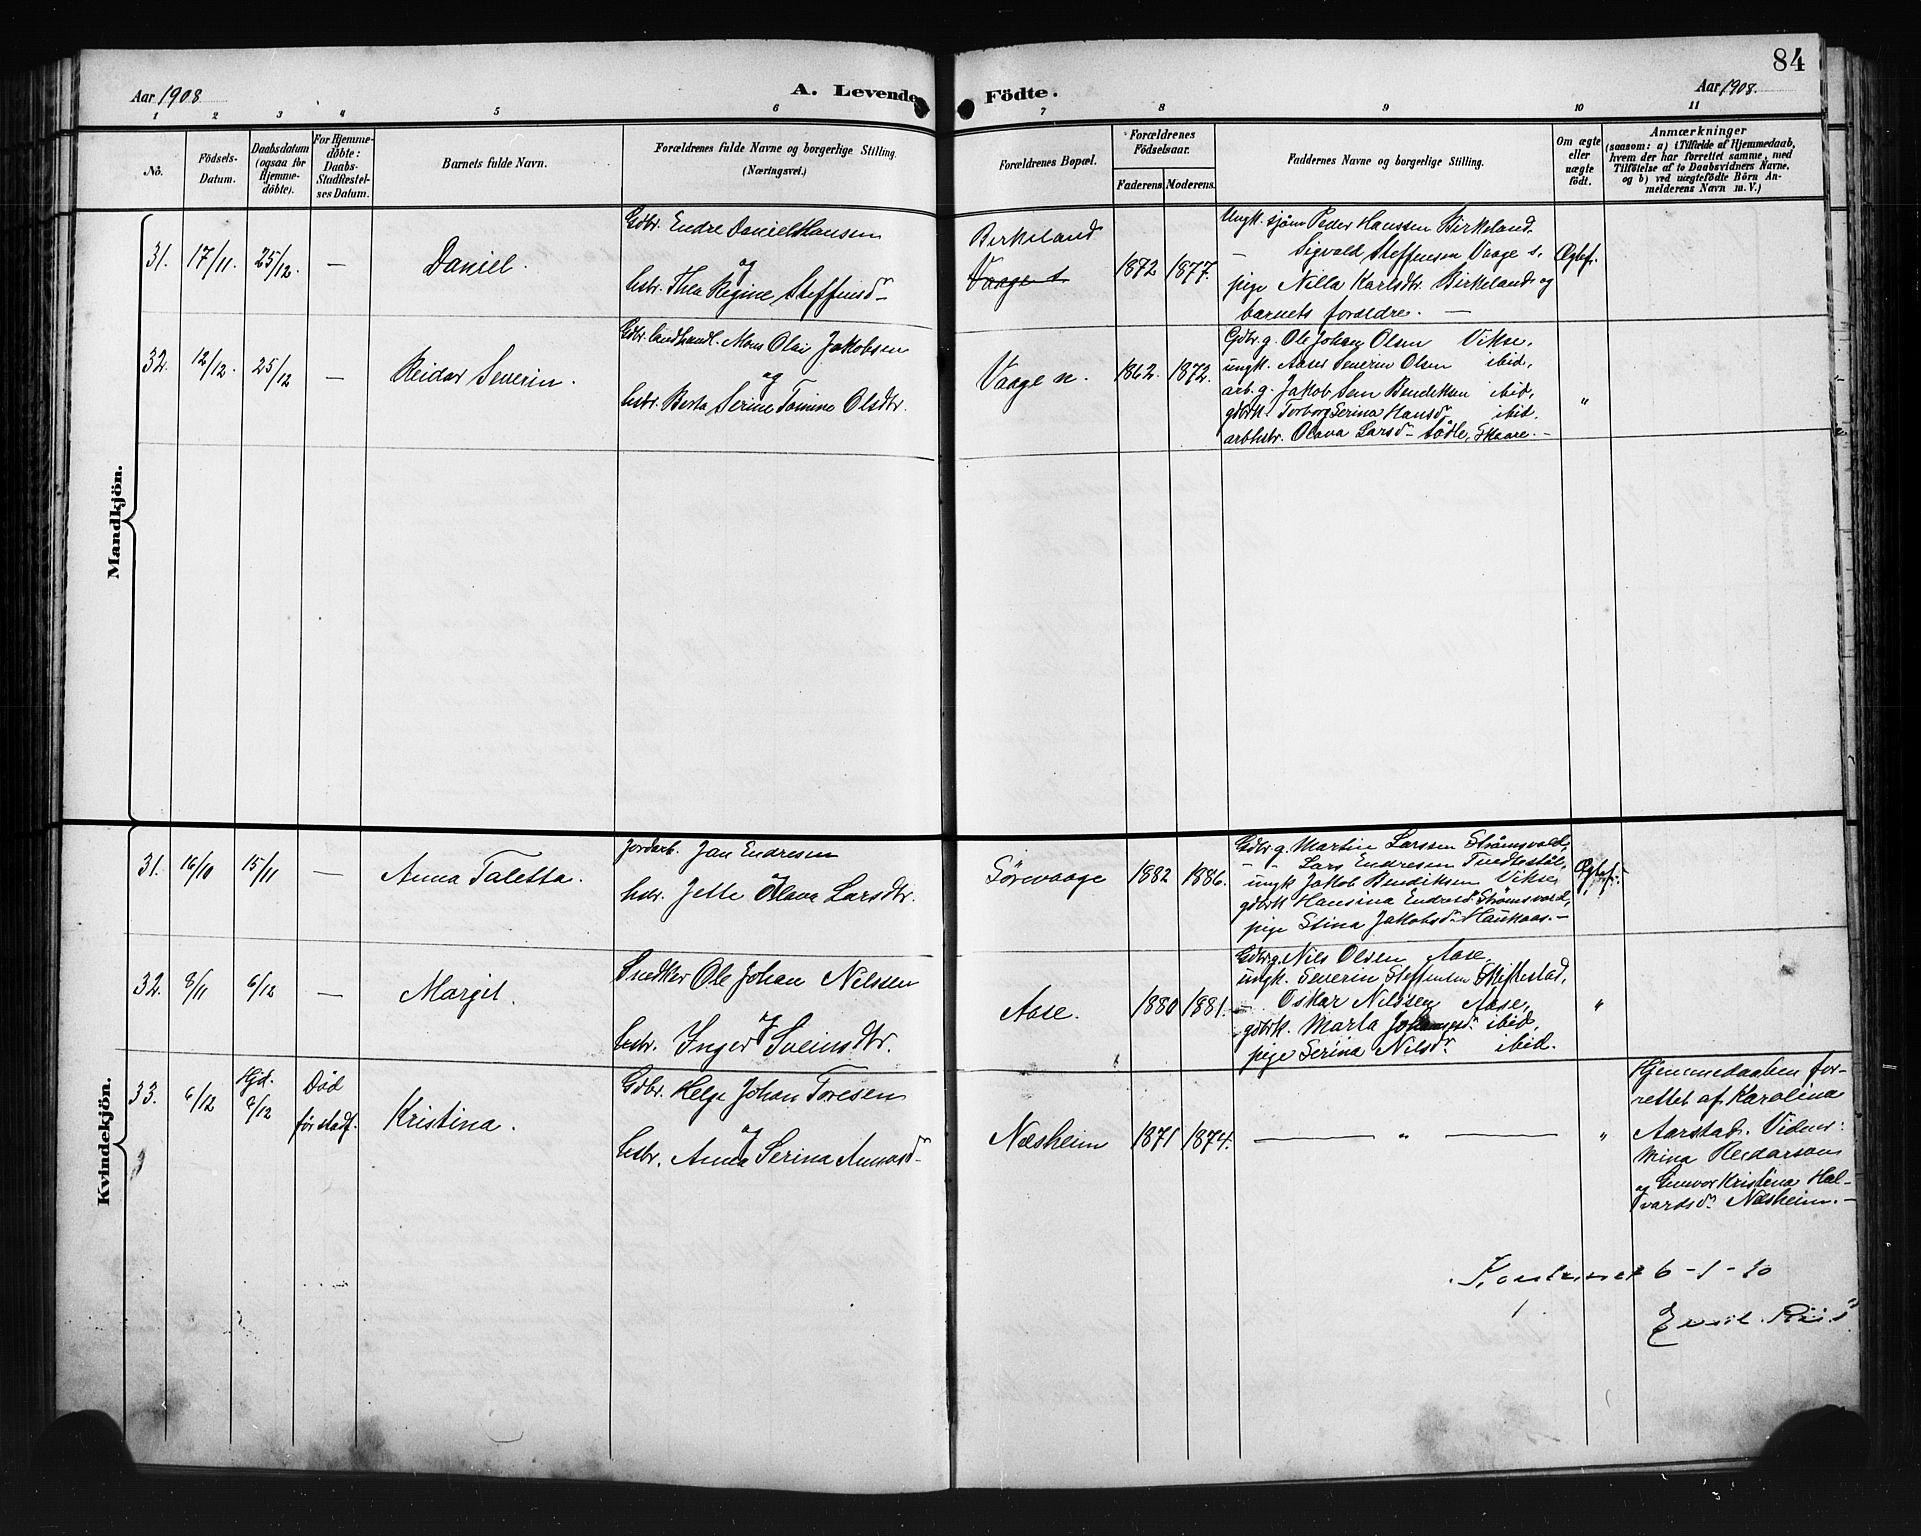 84
Aar 1908
A. Levende Födte.
Aar 1908.
1 2 3 4 5 6 7 8 9 10 11
No.
Födsels-
Datum.
Daabsdatum
(ogsaa for
Hjemme-
döbte).
For Hjemme-
döbte:
Daabs-
Stadfæstel-
ses Datum.
Barnets fulde Navn.
Forældrenes fulde Navne og borgerlige Stilling
(Næringsvei.)
Forældrenes Bopæl.
Forældrenes
Födselsaar.
Faderens.
Moderens.
Faddernes Navne og borgerlige Stilling.
Om ægte
eller
uægte
födt.
Anmærkninger
(saasom: a) i Tilfælde af Hjemmedaab,
hvem der har forrettet samme, med
Tilföielse af to Daabsvidners Navne,
og b) ved uægtefödte Börn An-
melderens Navn m. V.)
Mandkjön.
31. 17/11. 25/12. — Daniel.
Gdbr. Endre Daniel Hansen
og
hstr. Thea Regine Steffensdr
Birkeland
Vaage s.
1872 1877.
Ungk. sjöm Peder Hanssen Birkeland
— Sigvald Steffensen Vaage s.
pige Nilla Karlsdtr. Birkeland og
barnets forældre. —
Ægtef.
32. 12/12. 25/12 — Reidar Severin.
Gdbr. landhandl. Mons Olai Jakobsen
og
hstr. Berta Serine Tomine Olsdtr.
Vaage n. 1862. 1872.
Gdbr.g. Ole Johan Olsen Vikse,
ungk. Aaser Severin Olsen ibid,
arb.g. Jakob Sem Bendiksen ibid,
gdbrk. Torborg Serina Hansdr ibid.
arbhstr. Olava Larsdr Södle, Skaare. —
"
Kvindekjön.
31. 16/10 15/11 — Anna Taletta.
Jordarb. Jan Endresen
og
hstr. Jette Olava Larsdtr.
Sörevaage 1882 1886.
Gdbr.g. Martin Larssen Strömsvold,
— " — Lars Endresen Tvedtestöl,
ungk Jakob Bendiksen Vikse,
gdbrk Hansina Endresdr Strömsvold,
pige Stina Jakobsdr Haukaas. —
Ægtef.
32. 8/11 6/12 — Margit.
Snedker Ole Johan Nilssen
og
hstr. Inger Sveinsdtr.
Aase. 1880 1881.
Gdbr.g. Nils Olsen Aase,
ungk. Severin Steffensen Skiftestad,
— Oskar Nilssen Aase,
gdbrk. Marta Johannesdr ibid,
pige Serina Nilsdr ibid.
"
33. 6/12 Hjd. 6/12 Död för stadf. Kristina.
Gdbr. Helge Johan Toresen
og
hstr. Anna Serina Amundsdr
Næsheim 1871 1874. — " — "
Hjemmedaaben for-
rettet af Karolina
Aarstad. Vidner:
Mina Reidarson
og Gunvor Kristina Hal-
vardsdr Næsheim. —
Konfereret 6-1-10
Emil Riis